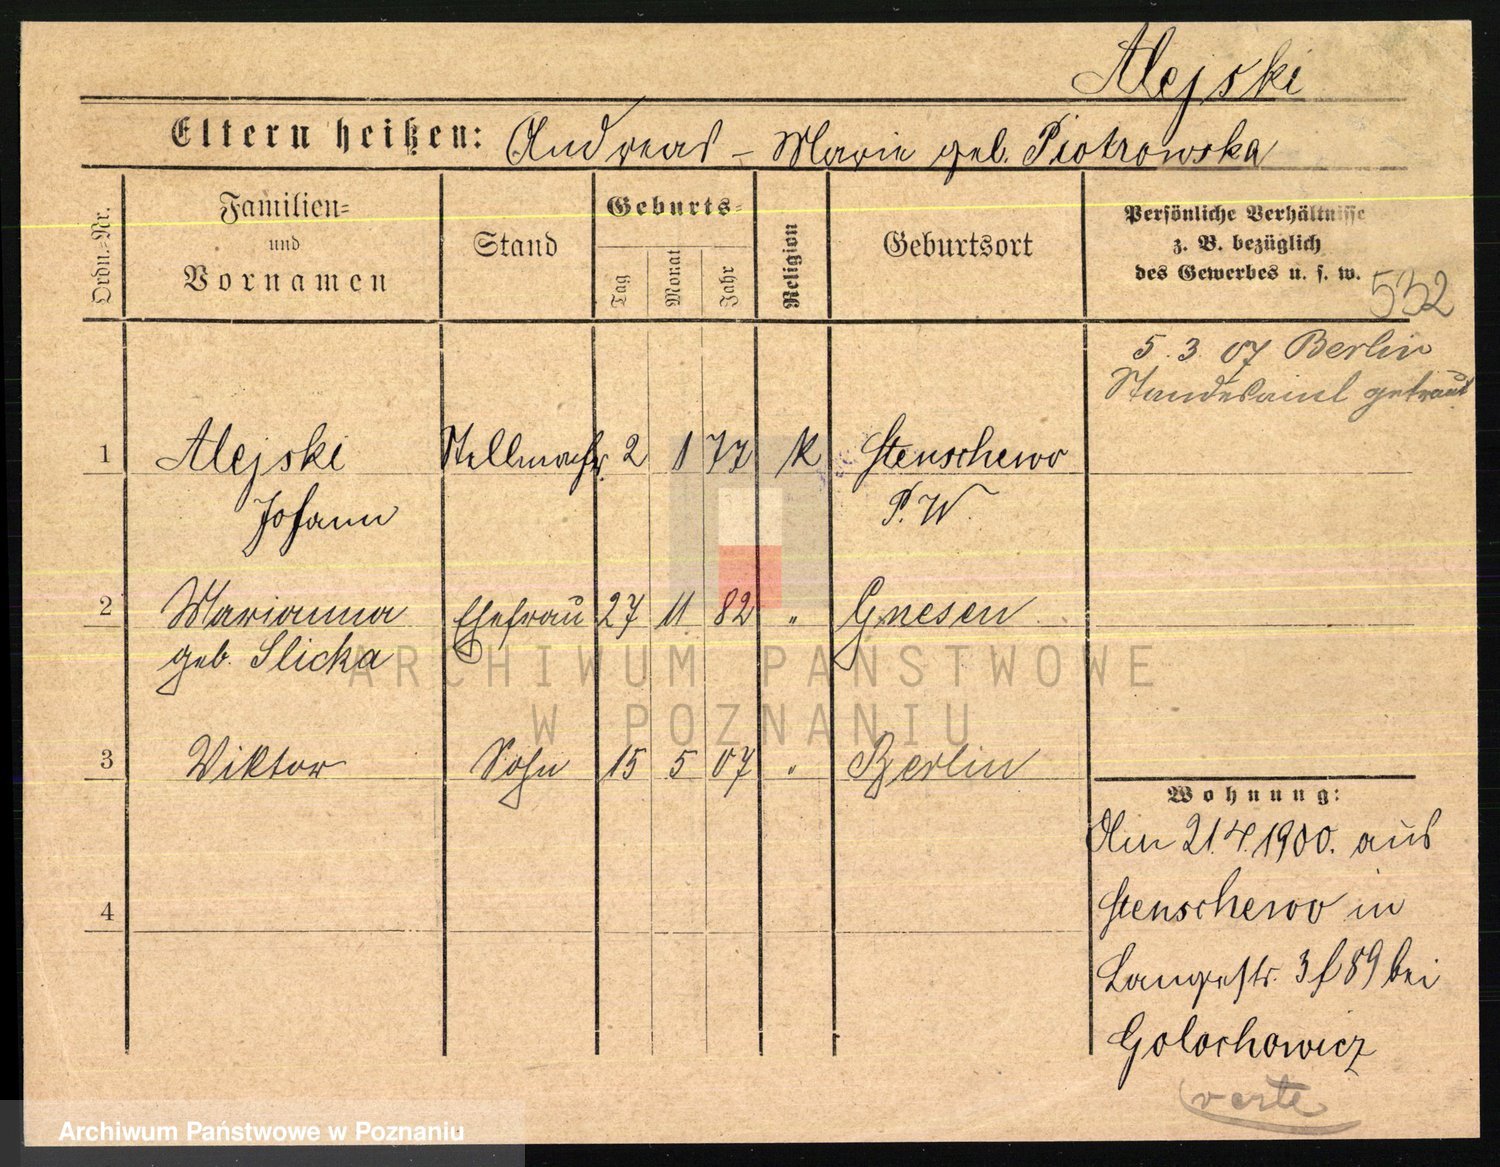 Alejski
Eltern heißen: Andreas – Marie geb. Piotrowska
Ordn.=Nr.
Familien=
und
Vornamen
Stand
Geburts=
Tag
Monat
Jahr
Religion
Geburtsort
Persönliche Verhältnisse
z. B. bezüglich
des Gewerbes u. s. w.
552
5. 3. 07 Berlin
Standesamt getraut
1 Alejski Stellmacher 2 1 77 K Stenschewo
Johann P. W.
2 Marianna Ehefrau 27 11 82 " Gnesen
geb. Slicka
3 Viktor Sohn 15 5 07 " Berlin
4
Wohnung:
Am 21.4.1900. aus
Stenschewo in
Langestr. 3 f 89 bei
Golochowicz
verte
ARCHIWUM PAŃSTWOWE
W POZNANIU
Archiwum Państwowe w Poznaniu